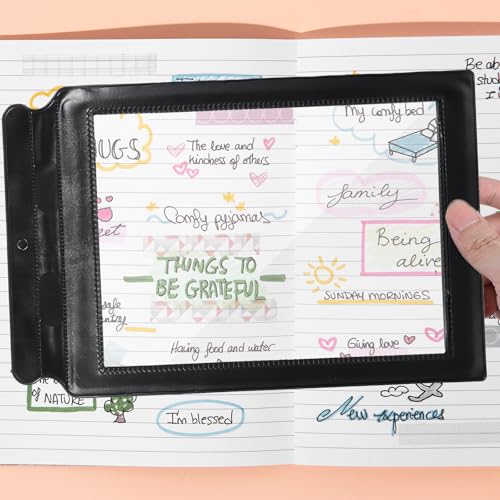 UGS
The love and
kindness of others
Comfy pyjamas
THINGS TO
BE GRATEFUL
Having food and water
of NATURE
I'm blessed
Be
stud
I
My comfy bed
family
Being
alive
SUNDAY MORNINGS
Giving love
New experiences